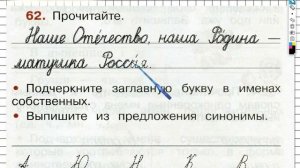 62. Прочитайте.
Наше Оте́чество, наша Ро́дина —
матушка Росси́я.
• Подчеркните заглавную букву в именах
собственных.
• Выпишите из предложения синонимы.